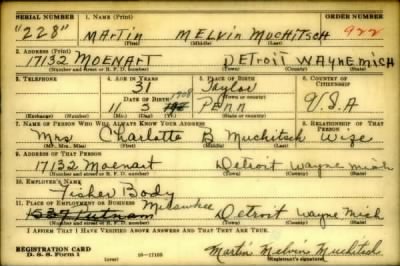 SERIAL NUMBER 1. NAME (Print) ORDER NUMBER
"228" MArtin MELvin MuchitscH 922
(First) (Middle) (Last)
2. ADDRESS (Print)
17132 MOENArt DETroiT WAYNE MICH
(Number and street or R. F. D. number) (Town) (County) (State)
3. TELEPHONE 4. AGE IN YEARS 5. PLACE OF BIRTH 6. COUNTRY OF CITIZENSHIP
31 Taylor
DATE OF BIRTH 1908
11 3 Penn U.S.A
(Exchange) (Number) (Mo.) (Day) (Yr.) (Town or county) (State or country)
7. NAME OF PERSON WHO WILL ALWAYS KNOW YOUR ADDRESS 8. RELATIONSHIP OF THAT PERSON
Mrs Charlotte B Muchitsch Wife
(Mr., Mrs., Miss) (First) (Middle) (Last)
9. ADDRESS OF THAT PERSON
17132 Moenart Detroit Wayne Mich
(Number and street or R. F. D. number) (Town) (County) (State)
10. EMPLOYER'S NAME
Fisher Body
11. PLACE OF EMPLOYMENT OR BUSINESS Milwaukee
Detroit Wayne Mich
(Number and street or R. F. D. number) (Town) (County) (State)
I AFFIRM THAT I HAVE VERIFIED ABOVE ANSWERS AND THAT THEY ARE TRUE.
REGISTRATION CARD
D. S. S. Form 1 (over) 16—17105 Martin Melvin Muchitsch
(Registrant's signature)